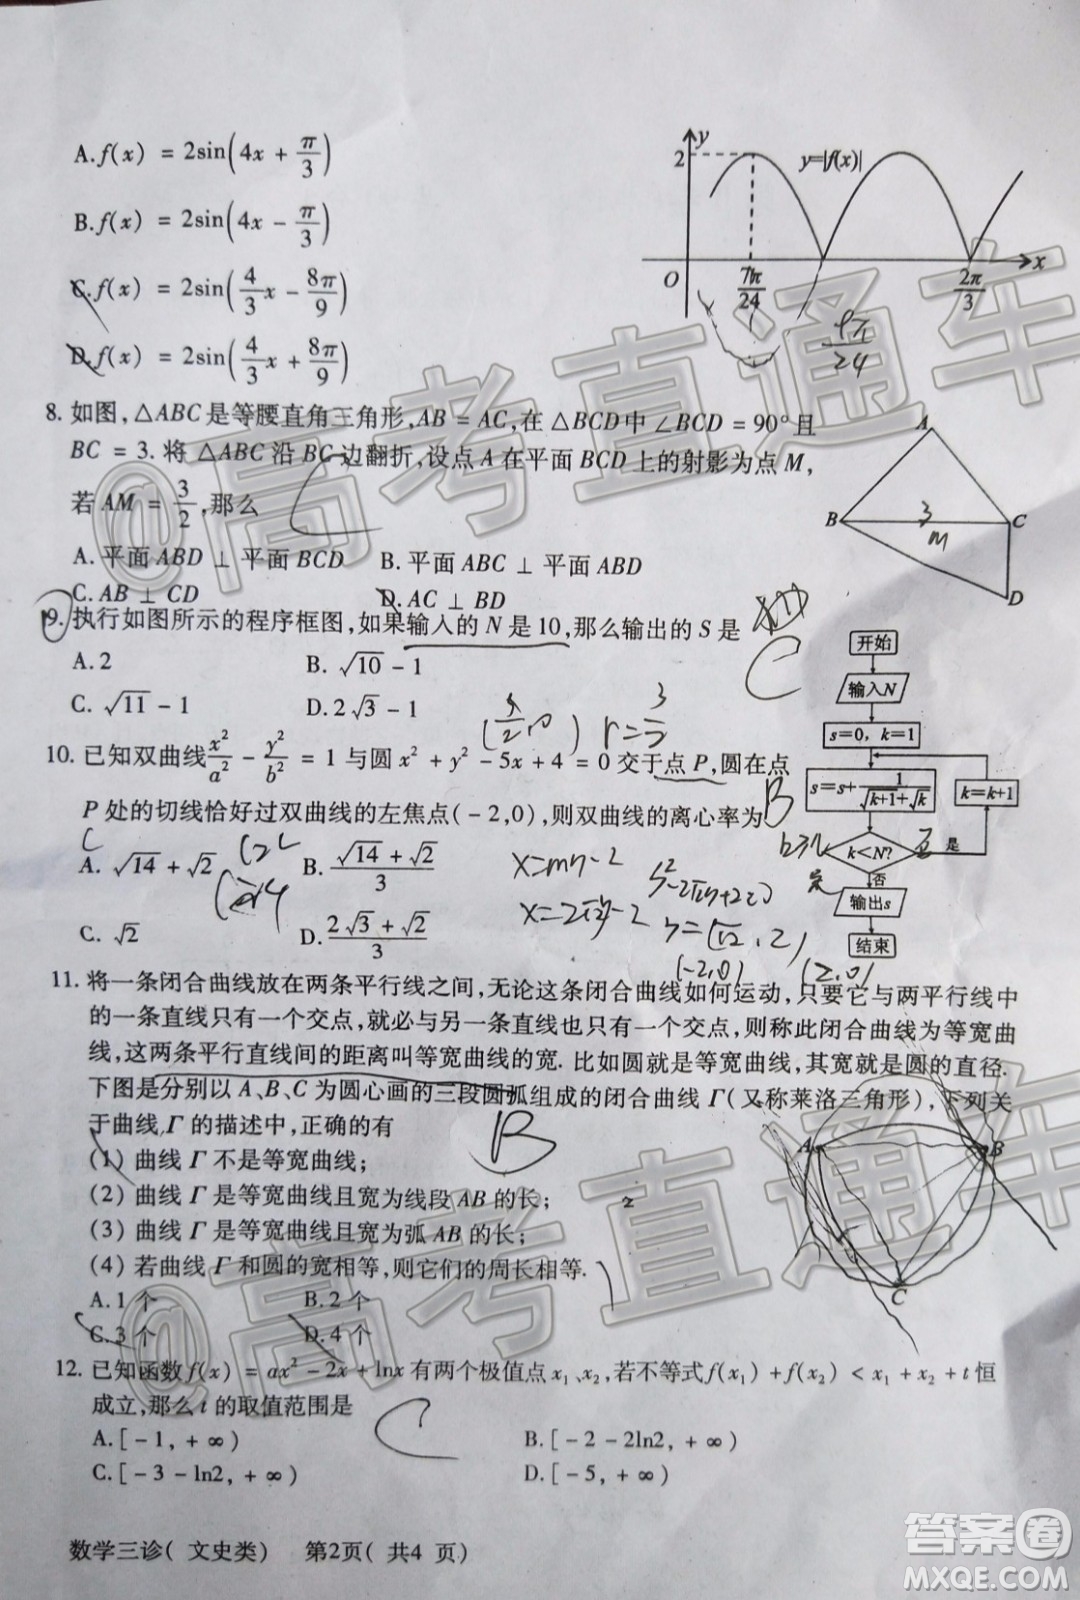 A. f(x) = 2sin(4x + π/3)
B. f(x) = 2sin(4x - π/3)
C. f(x) = 2sin(4/3 x - 8π/9)
D. f(x) = 2sin(4/3 x + 8π/9)
y
2
y=|f(x)|
O
7π/24
2π/3
x
9π/24
8. 如图,△ABC 是等腰直角三角形,AB = AC,在 △BCD 中 ∠BCD = 90° 且
BC = 3. 将 △ABC 沿 BC 边翻折,设点 A 在平面 BCD 上的射影为点 M,
若 AM = 3/2,那么
C
A. 平面 ABD ⊥ 平面 BCD
B. 平面 ABC ⊥ 平面 ABD
C. AB ⊥ CD
D. AC ⊥ BD
A
B
3
C
M
D
9. 执行如图所示的程序框图,如果输入的 N 是 10,那么输出的 S 是
C
A. 2
B. √10 - 1
C. √11 - 1
D. 2√3 - 1
开始
输入N
s=0, k=1
s=s+1/(√(k+1)+√k)
k=k+1
k<N?
是
否
输出s
结束
r=3/2
10. 已知双曲线 x²/a² - y²/b² = 1 与圆 x² + y² - 5x + 4 = 0 交于点 P,圆在点
P 处的切线恰好过双曲线的左焦点( - 2,0),则双曲线的离心率为
B
A. √14 + √2
B. (√14 + √2)/3
C. √2
D. (2√3 + √2)/3
x=my-2
(-2,0)
(2,0)
11. 将一条闭合曲线放在两条平行线之间,无论这条闭合曲线如何运动,只要它与两平行线中
的一条直线只有一个交点,就必与另一条直线也只有一个交点,则称此闭合曲线为等宽曲
线,这两条平行直线间的距离叫等宽曲线的宽. 比如圆就是等宽曲线,其宽就是圆的直径.
下图是分别以 A、B、C 为圆心画的三段圆弧组成的闭合曲线 Γ(又称莱洛三角形),下列关
于曲线 Γ 的描述中,正确的有
B
(1) 曲线 Γ 不是等宽曲线;
(2) 曲线 Γ 是等宽曲线且宽为线段 AB 的长;
(3) 曲线 Γ 是等宽曲线且宽为弧 AB 的长;
(4) 若曲线 Γ 和圆的宽相等,则它们的周长相等.
A
B
C
2
A. 1 个
B. 2 个
C. 3 个
D. 4 个
12. 已知函数 f(x) = ax² - 2x + lnx 有两个极值点 x₁、x₂,若不等式 f(x₁) + f(x₂) < x₁ + x₂ + t 恒
成立,那么 t 的取值范围是
C
A. [ - 1, + ∞ )
B. [ - 2 - 2ln2, + ∞ )
C. [ - 3 - ln2, + ∞ )
D. [ - 5, + ∞ )
数学三诊( 文史类) 第2页( 共4 页)
@高考直通车
@高考直通车
答案圈
MXQE.COM